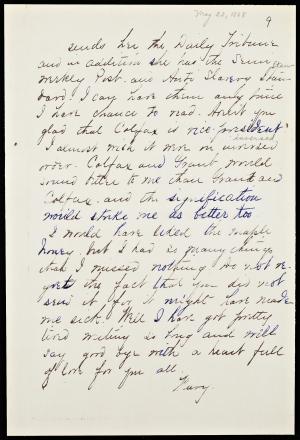 May 23, 1868
9
sends her the Daily Tribune
and in addition she has the Semi
weekly Post and Anti Slavery Stan
dard. I can have them any time
I have chance to read. Arn't you
glad that Colfax is vice-president
I almost wish it were in inversed
order. Colfax and Grant would
sound better to me than Grant and
Colfax and the signification
would strike me as better too.
I would have liked the maple
honey but I had so many things
that I missed nothing. Do not re-
gret the fact that you did not
send it for it might have made
me sick. Well I have got pretty
tired writing so long and will
say good bye with a heart full
of love for you all.